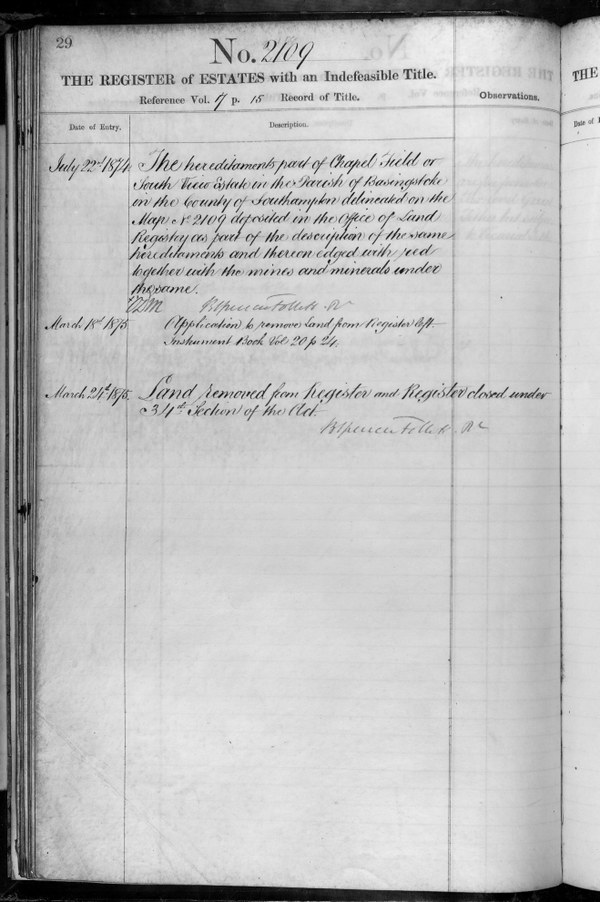 29
No. 2109
THE REGISTER of ESTATES with an Indefeasible Title.
Reference Vol. 7 p. 15 Record of Title.
Observations.
Date of Entry.
Description.
July 22nd 1874
The hereditaments part of Chapel Field or
South View Estate in the Parish of Basingstoke
in the County of Southampton delineated on the
Map No 2109 deposited in the Office of Land
Registry as part of the description of the same
hereditaments and thereon edged with red
together with the mines and minerals under
the same.
BSpencer Follett. Rr
March 18th 1875
Application to remove Land from Register left
Instrument Book Vol 20 p 24.
March 24th 1875.
Land removed from Register and Register closed under
34th Section of the Act.
BSpencer Follett. Rr
THE
Date of